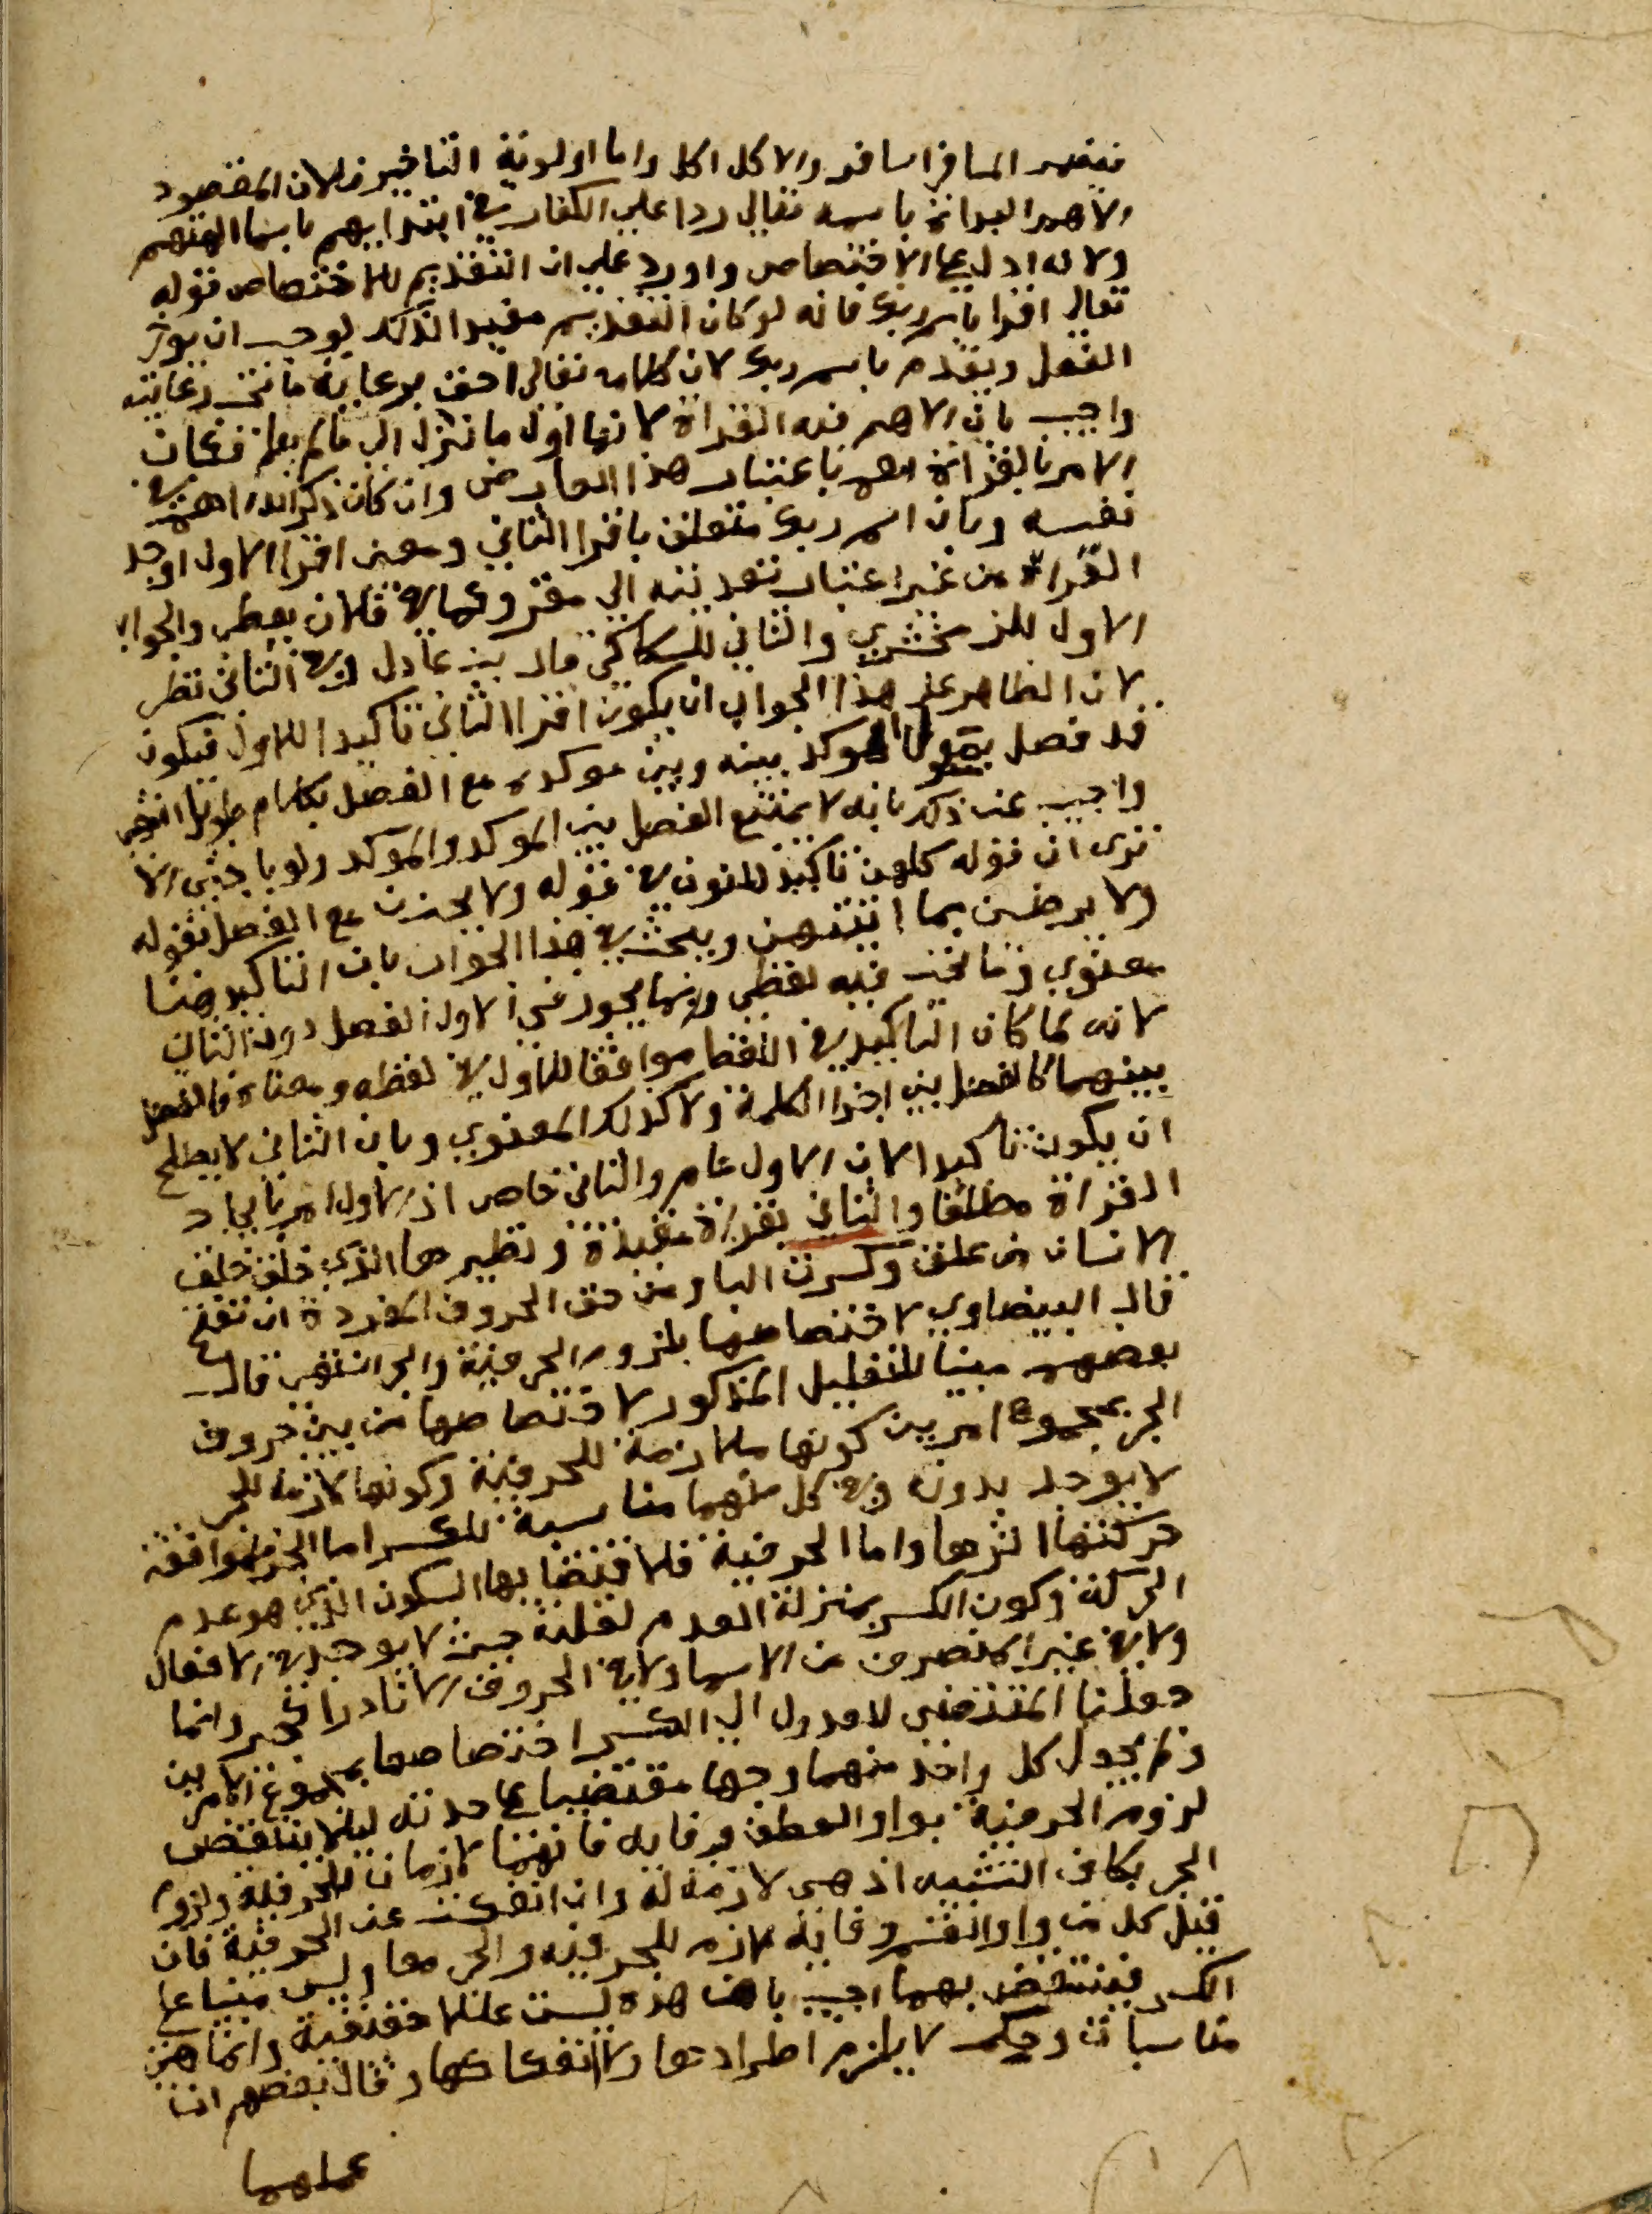 فيضمر المسافر اسافر والاكل اكل واما اولوية التاخير فلان المقصود
الاهم البداة باسمه تعالي ردا علي الكفار في ابتدايهم باسما الهتهم
ولانه ادل علي الاختصاص واورد علي ان التقديم للاختصاص قوله
تعالي اقرا باسم ربك فانه لو كان التقديم مفيدا لذلك لوجب ان يوخر
الفعل ويقدم باسم ربك لان كلامه تعالي احق برعاية ما تجب رعايته
واجيب بان الاهم فيه القراة لانها اول ما نزل الي مالم يعلم فكان
الامر بالقراة اهم باعتبار هذا العارض وان كان ذكر الله اهم في
نفسه وبان اسم ربك متعلق باقرا الثاني ومعني اقرا الاول اوجد
القراة من غير اعتبار تعديته الي مقروء كما في فلان يعطي والجواب
الاول للزمخشري والثاني للسكاكي قال بن عادل وفي الثاني نظر
لان الظاهر علي هذا الجواب ان يكون اقرا الثاني تاكيدا للاول فيكون
قد فصل بمعمول الموكد بينه وبين موكده مع الفصل بكلام طويل انتهي
واجيب عن ذلك بانه لا يمتنع الفصل بين الموكد والموكد ولو باجنبي الا
تري ان قوله كلهن تاكيد للنون في قوله ولا يحزن مع الفصل بقوله
ولا يرضين بما اتيتهن ويبحث في هذا الجواب بان التاكيد هنا
معنوي وما نحن فيه لفظي وانما يجوز في الاول الفصل دون الثاني
لانه لما كان التاكيد في اللفظ موافقا للاول في لفظه ومعناه فالفصل
بينهما كالفصل بين اجزا الكلمة ولا كذلك المعنوي وبان الثاني لا يصلح
ان يكون تاكيدا لان الاول عام والثاني خاص اذ الاول امر بايجاد
القراة مطلقا والثاني بقراة مقيدة ونظيرها الذي خلق خلق
الانسان من علق وكسرت البا ومن حق الحروف المفردة ان تفتح
قال البيضاوي لاختصاصها بلزوم الحرفية والجر انتهي قال
بعضهم مبينا للتعليل المذكور لاختصاصها من بين حروف
الجر بمجموع امرين كونها ملازمة للحرفية وكونها لازمة للجر
لا يوجد بدونه وفي كل منهما مناسبة للكسر اما الجر فلموافقة
حركتها اثرها واما الحرفية فلاقتضايها السكون الذي هو عدم
الحركة وكون الكسر بمنزلة العدم لقلته حيث لا يوجد في الافعال
ولا في غير المنصرف من الاسما ولا في الحروف الا نادرا كجير وانما
جعلنا المقتضي للعدول الي الكسر اختصاصها بمجموع الامرين
ولم يجعل كل واحد منهما وجها مقتضيا علي حدته ليلا ينتقض
لزوم الحرفية بواو العطف وفايه فانهما لازمان للحرفية ولزوم
الجر بكاف التشبيه اذ هي لازمة له وان انفكت عن الحرفية فان
قيل كل من واو القسم وفايه لازم للحرفية والجر معا وليس مبنيا علي
الكسر فينتقض بهما اجيب بان هذه ليست عللا حقيقية وانما هي
مناسبات وحكم لا يلزم اطرادها ولا انعكاسها وقال بعضهم ان
عملهما